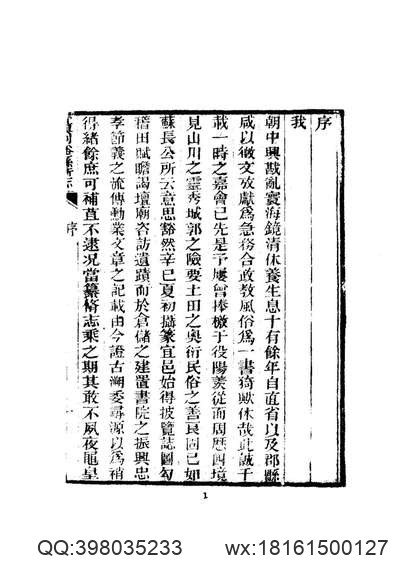 序
我
朝中興戡亂寰海鏡清休養生息十有餘年自直省以及郡縣
咸以徵文攷獻爲急務合政教風俗爲一書猗歟休哉此誠千
載一時之嘉會已先是予屢曾捧檄于役陽羨從而周歷四境
見山川之靈秀城郭之險要土田之奧衍民俗之善良固已如
蘇長公所云意思豁然辛巳夏初攝篆宜邑始得披覽誌圖勾
稽田賦瞻謁壇廟咨訪遺蹟而於倉儲之建置書院之振興忠
孝節義之流傳勳業文章之記載由今證古溯委尋源以爲稍
得緒餘庶可補苴不逮况當纂脩志乘之期其敢不夙夜黽皇
序
1
QQ:398035233 wx:18161500127